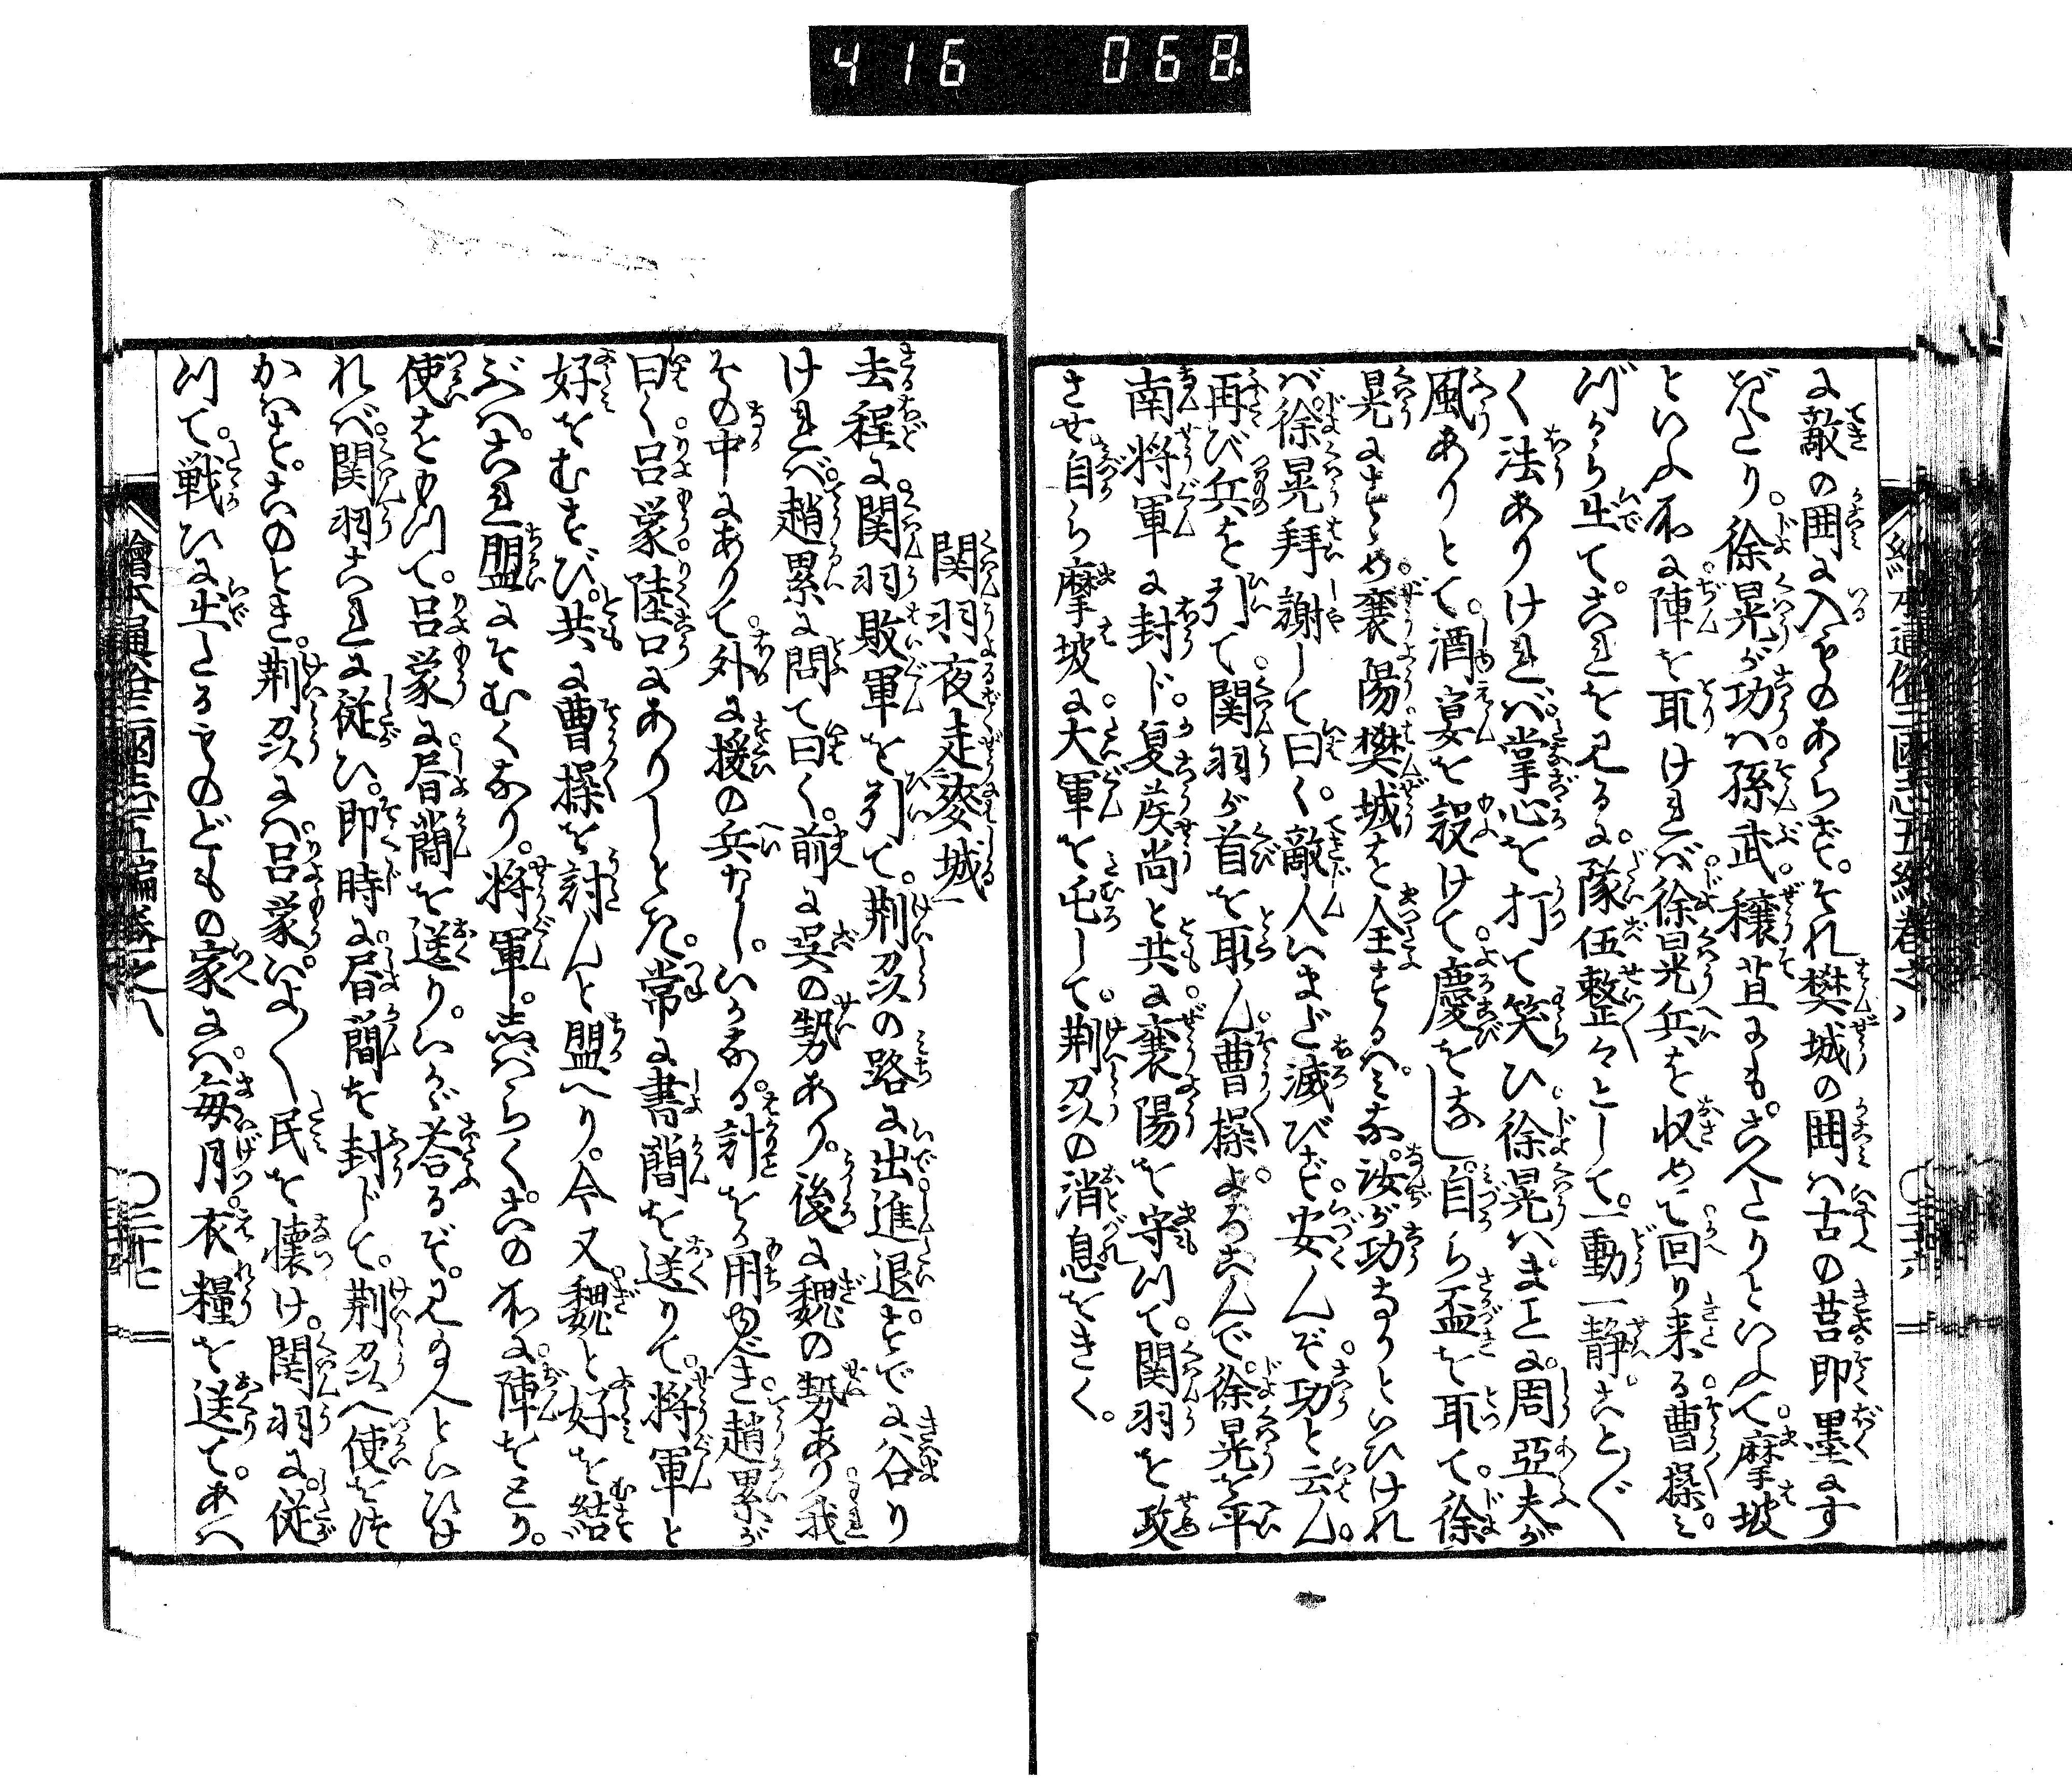 416 068
に敵の囲に入ものあらず。それ樊城の囲は古の莒即墨にす
ぎたり。徐晃が功は。孫武。穣苴にも。こへたりといふて。摩坡
といふ所に。陣を取ければ。徐晃兵を収めて。回り来る。曹操。み
づから出て。これを見るに。隊伍整々として。一動一静。こと〴〵
く法ありければ。掌心を打て笑ひ。徐晃は。まことに。周亜夫が
風ありとて。酒宴を設けて。慶をなし。自ら盃を取て。徐
晃にすゝめ。襄陽。樊城を全するは。みな。汝が功なりといひけれ
ば。徐晃拝謝して曰く。敵人いまだ滅びず。安んぞ。功と云ん。
再び兵を引て。関羽が首を取ん。曹操。よろこんで。徐晃を平
南将軍に封じ。夏侯尚と共に。襄陽を守つて。関羽を攻
させ自ら摩坡に。大軍を屯して。荊州の消息をきく。
関羽夜走麥城
去程に。関羽敗軍を引て。荊州の路に出。進退。すでに谷り
ければ。趙累に問て曰く。前に呉の勢あり。後に魏の勢あり。我
その中にありて。外に援の兵なし。いかなる。計をか用ゆべき。趙累が
曰く。呂蒙。陸口にありしとき。常に書簡を送りて。将軍と
好をむすび。共に曹操を討んと盟へり。今又。魏と好を結
ぶは。これ盟にそむくなり。将軍。しばらく。この所に。陣をとり。
使をもつて。呂蒙に。書簡を送り。いかゞ答るぞ。見玉へといひけ
れば。関羽これに従ひ。即時に。書簡を封じて。荊州へ使をつ
かはす。このとき。荊州には。呂蒙。いよ〳〵民を懐け。関羽に。従
つて。戦ひに出たるものどもの家には。毎月。衣糧を送て。あへ
繪本通俗三國志五編巻之八